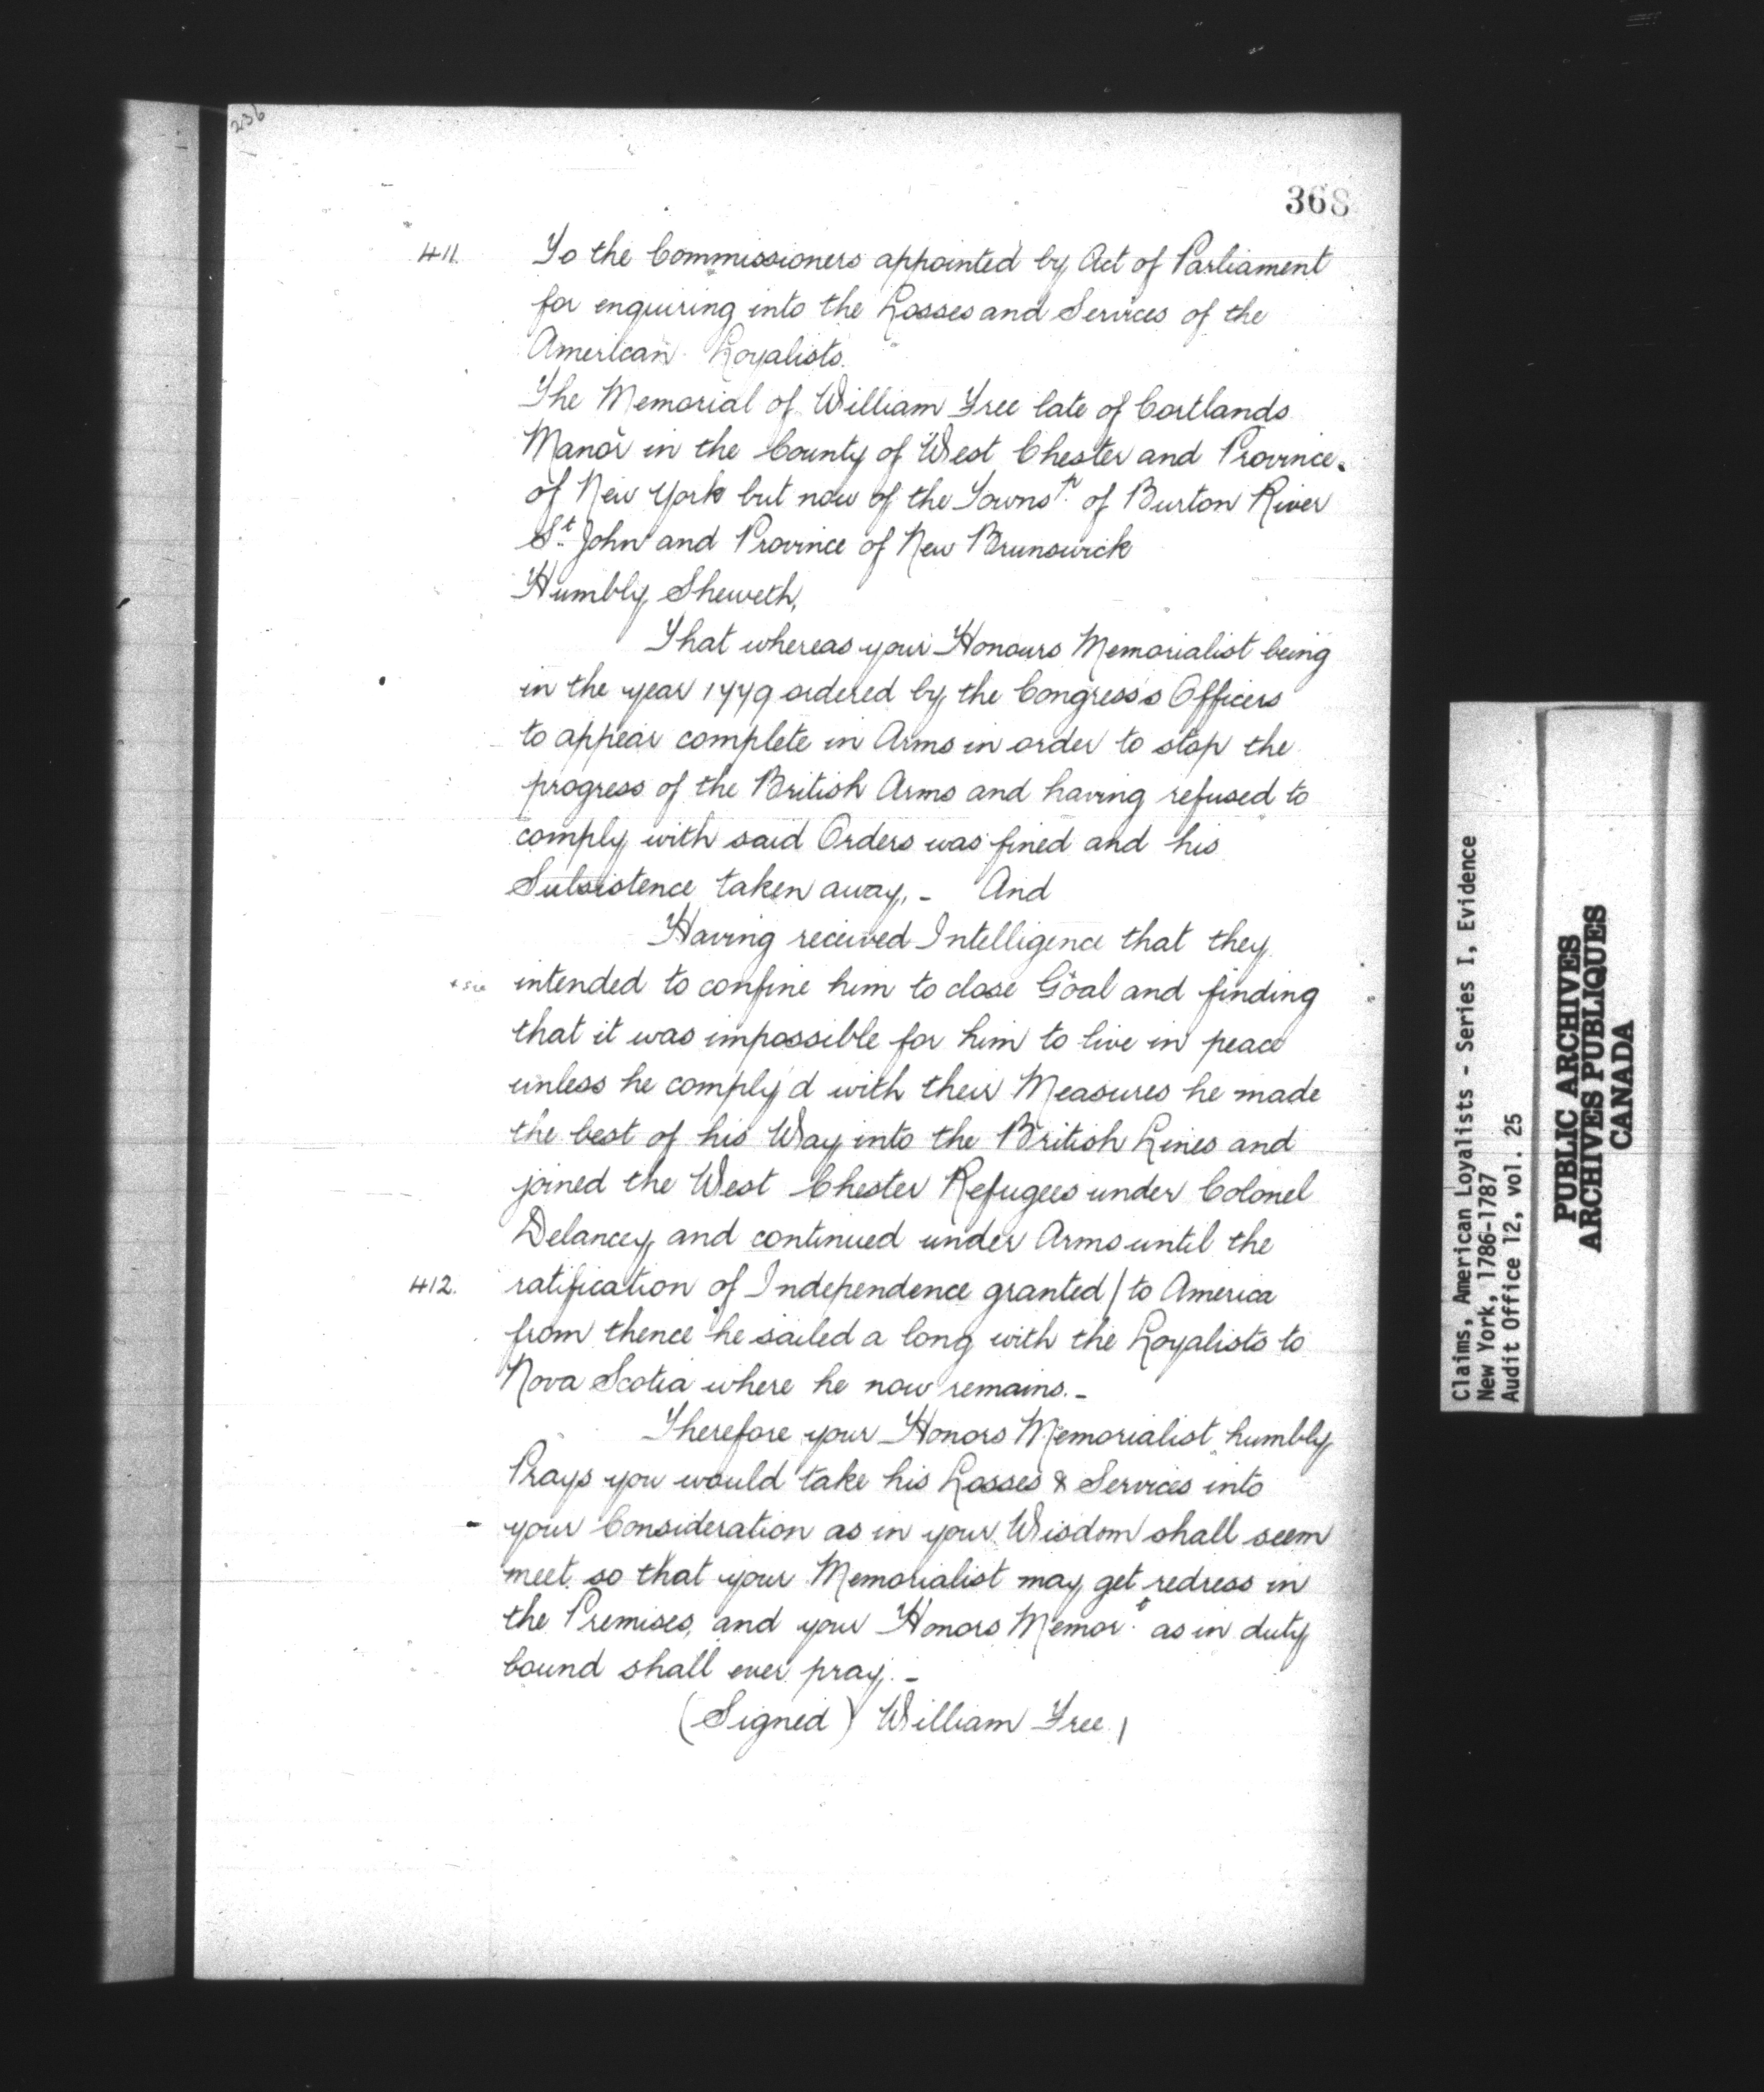 236
368
411. To the Commissioners appointed by Act of Parliament
for enquiring into the Losses and Services of the
American Loyalists.
The Memorial of William Tree late of Cortlands
Manor in the County of West Chester and Province
of New York but now of the Towns.p of Burton River
St. John and Province of New Brunswick
Humbly Sheweth,
That whereas your Honours Memorialist being
in the year 1779 ordered by the Congress's Officers
to appear complete in Arms in order to stop the
progress of the British Arms and having refused to
comply with said Orders was fined and his
Subsistence taken away, - And
Having received Intelligence that they
+ sic intended to confine him to close Goal and finding
that it was impossible for him to live in peace
unless he comply'd with their Measures he made
the best of his Way into the British Lines and
joined the West Chester Refugees under Colonel
Delancey, and continued under Arms until the
412. ratification of Independence granted / to America
from thence he sailed a long with the Loyalists to
Nova Scotia where he now remains. -
Therefore your Honors Memorialist humbly
Prays you would take his Losses & Services into
your Consideration as in your Wisdom shall seem
meet so that your Memorialist may get redress in
the Premises, and your Honors Memor.t as in duty
bound shall ever pray. -
(Signed) William Tree /
Claims, American Loyalists - Series I, Evidence
New York, 1786-1787
Audit Office 12, vol. 25
PUBLIC ARCHIVES
ARCHIVES PUBLIQUES
CANADA